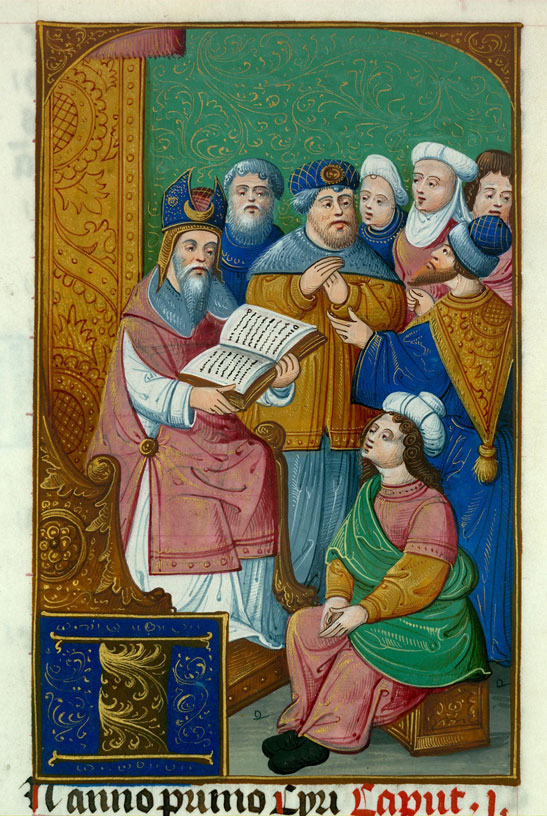 IN anno primo Cyri Caput .j.